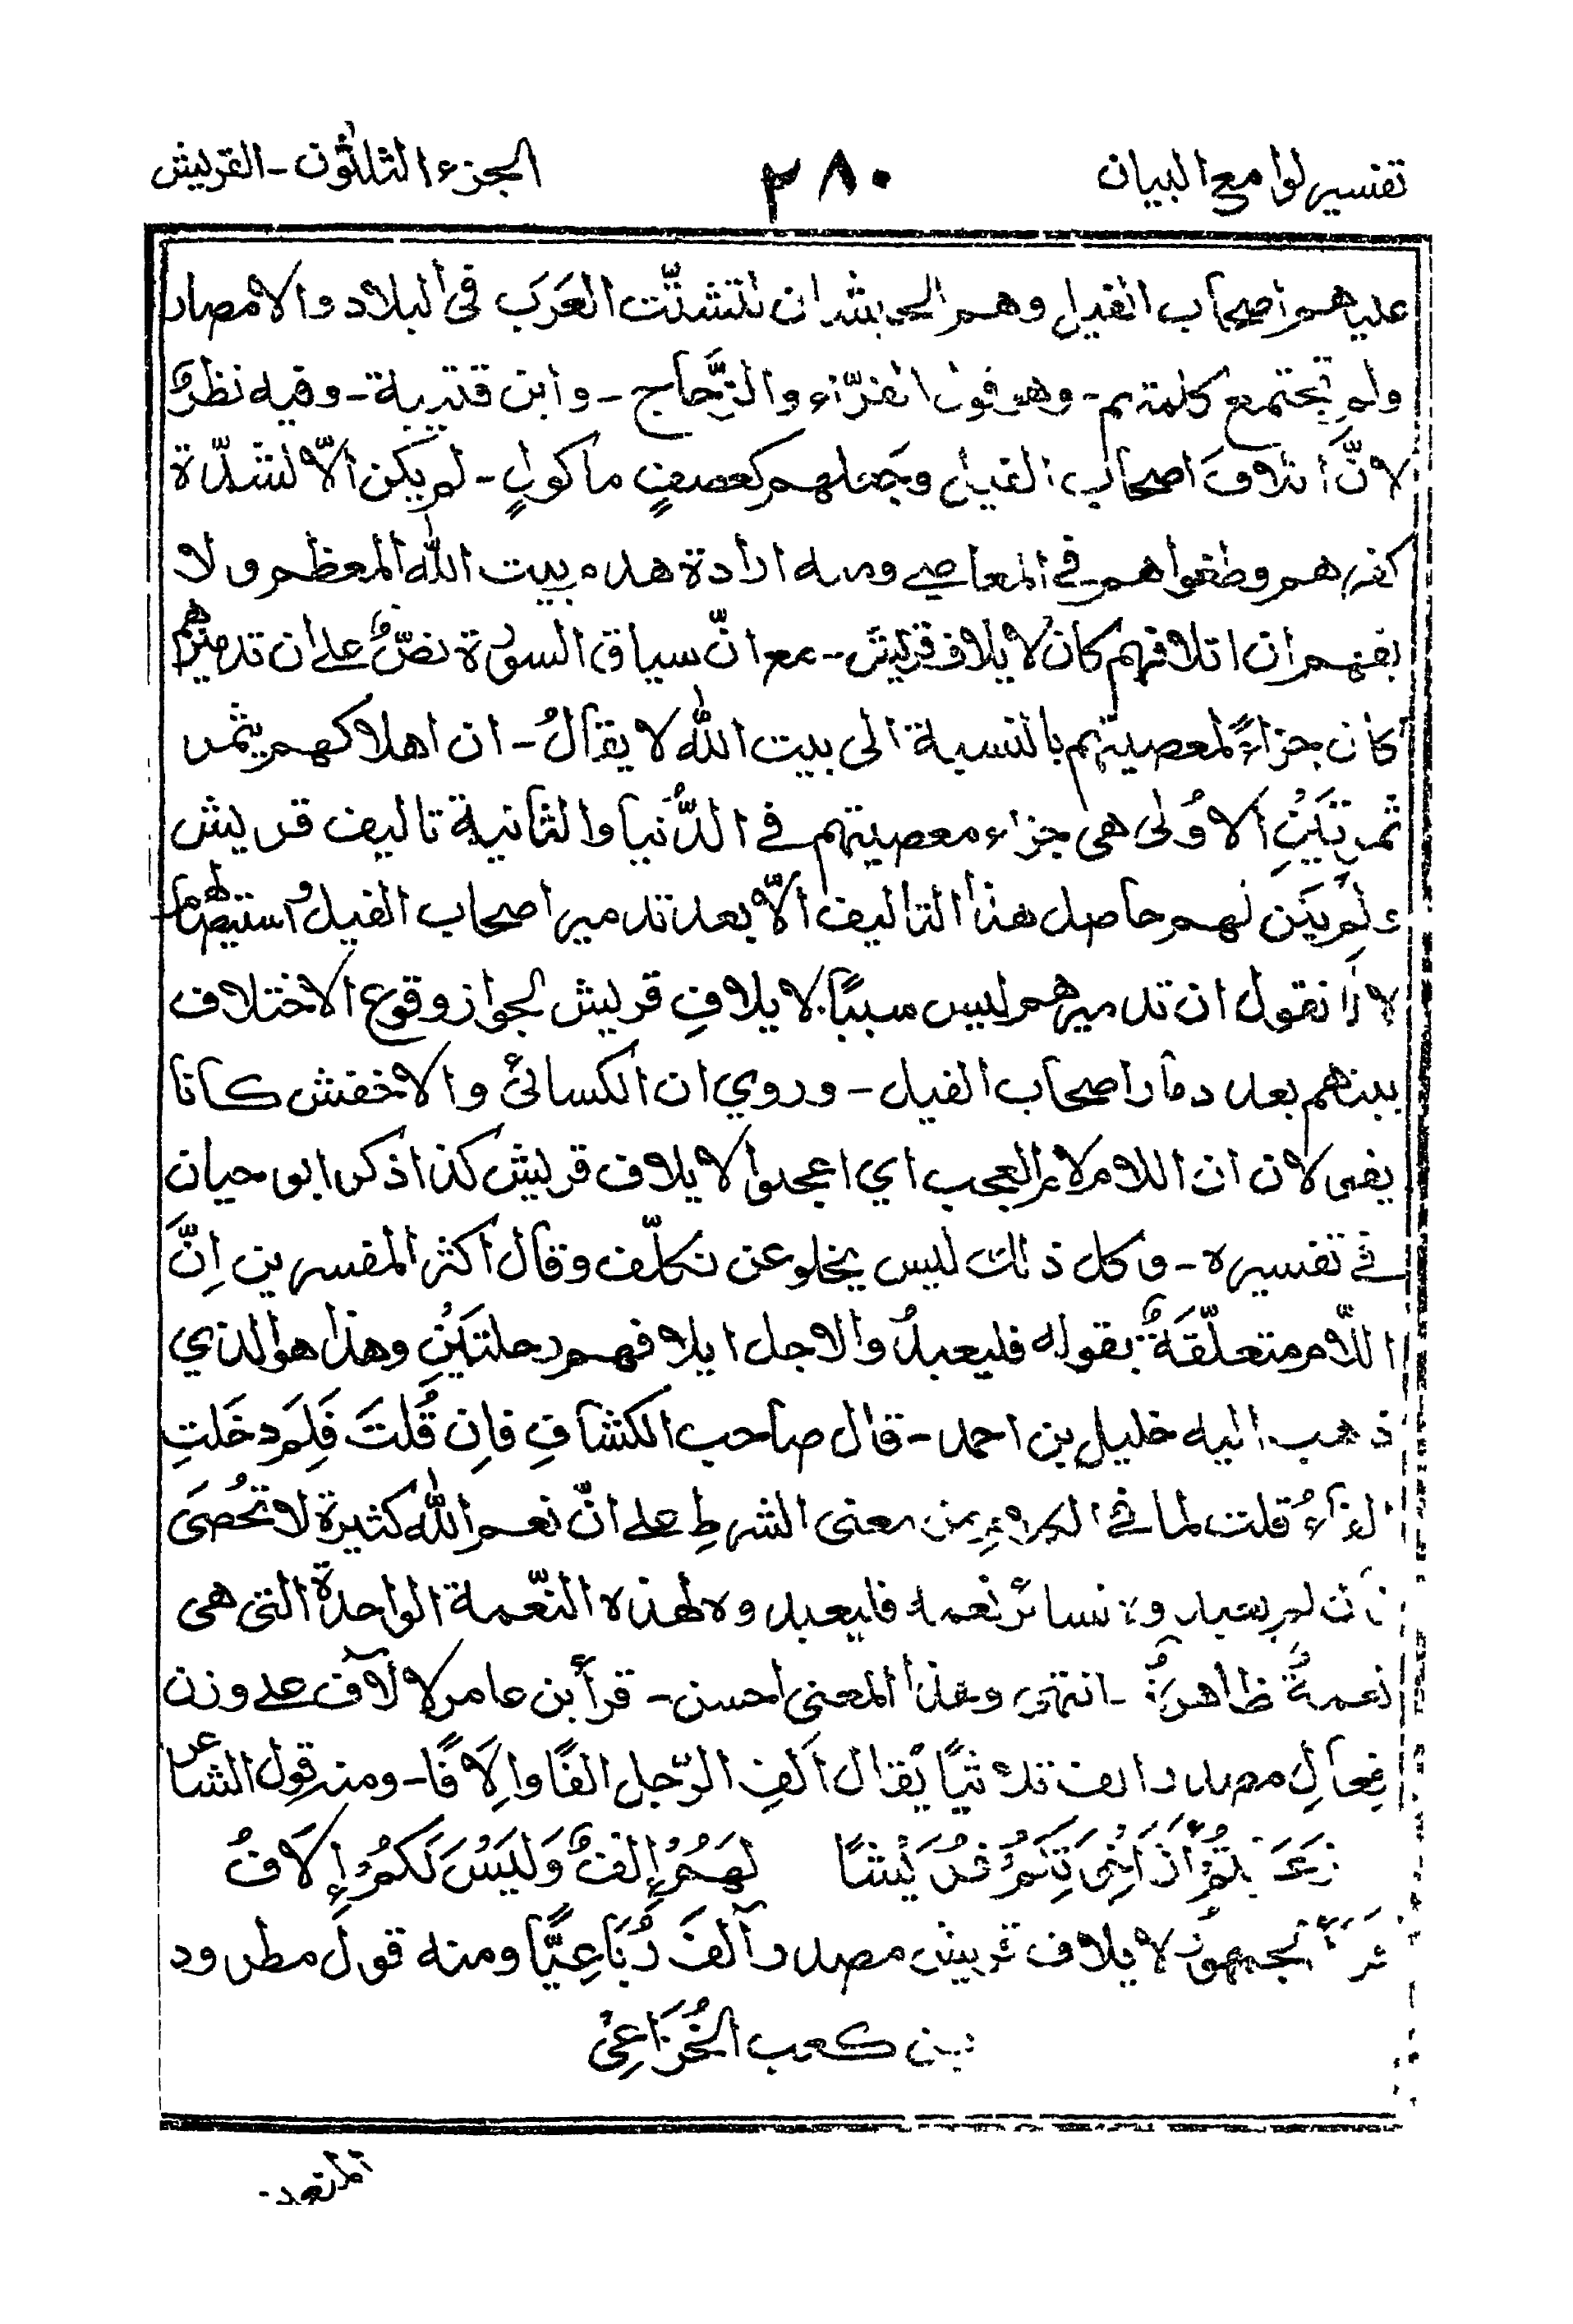 تفسير لوامع البيان
٢٨٠
الجزء الثلثون - القريش
عليهم اصحاب الفيل وهم الحبشة ان لتشتّت العَرَب فى البلاد والامصار
ولم تجتمع كلمتهم - وهو قول الفرّاء والزَّجاج - وابن قتيبة - وفيه نظرٌ
لانَّ اتلافَ اصحاب الفيل وجَعلهم كعصفٍ ماكولٍ - لم يكن الّا لشدّة
كفرهم وطغواهم فى المعاصى ومنه ارادة هدم بيت الله المعظم ولا
يفهم ان اتلافهم كان لايلاف قريش - مع انّ سياق السورة نصٌّ على ان تدميرهم
كان جزاءً لمعصيتهم بالنسبة الى بيت الله لا يقالُ - ان اهلاكهم يثمر
ثمرتَيْنِ الاوُلى هى جزاء معصيتهم فى الدُّنيا والثانية تاليف قريش
ولم يكن لهم حاصل هذا التاليف الّا بعد تدمير اصحاب الفيل
لانا نقول ان تدميرهم ليس سببًا لايلافِ قريش لجواز وقوع الاختلاف
بينهم بعد دمار اصحاب الفيل - وروي ان الكسائى والاخفش كانا
يقولان ان اللام لام العجب اي اعجبوا لايلاف قريش كذا ذكر ابو حيان
فى تفسيره - وكل ذلك ليس يخلو عن تكلّف وقال اكثر المفسرين اِنَّ
اللّام متعلّقةٌ بقوله فليعبدُوا لاجل ايلافهم رحلتَيْنِ وهذا هو الذي
ذهب اليه خليل بن احمد - قال صاحب الكشافِ فاِن قُلتَ فَلِمَ دخَلتِ
الفاءُ قلت لما فى الكلام من معنى الشرط على انّ نعم الله كثيرة لا تُحُصَى
فان لم يعبدوه لسائر نعمه فليعبدوه لهذه النّعمة الواحدة التى هى
نعمةٌ ظاهرةٌ - انتهى وهذا المعنى احسن - قرأ بن عامر لالآف على وزن
فِعَالِ مصدر الف ثلاثيًا يُقال اَلِفَ الرّجل الفًا واِلَافًا - ومنه قول الشاعر
زعَمْتُمْ أَنَّ إِخْوَتَكُمْ قُرَيْشًا لَهُمْ إِلْفٌ وَلَيْسَ لَكُمْ إِلَافُ
قرأ الجمهور لايلاف قريش مصدر آلَفَ رُبَاعِيًّا ومنه قول مطرود
بن كعب الخُزَاعِىْ